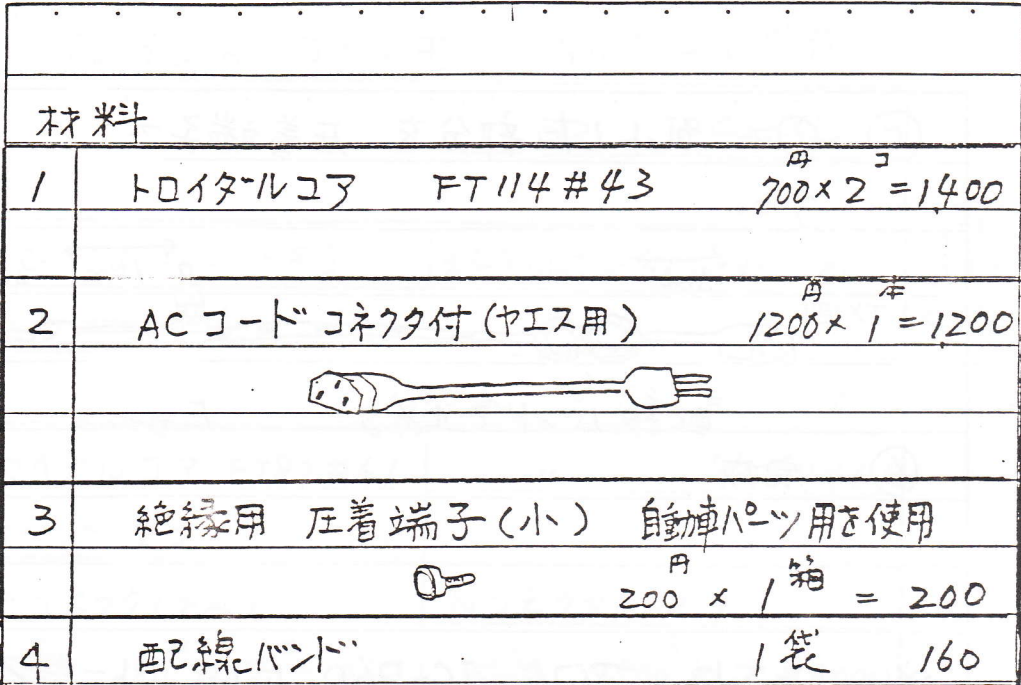 材料
1 トロイダルコア FT114#43 700円×2コ=1,400
2 ACコード コネクタ付(ヤエス用) 1200円×1本=1,200
3 絶縁用 圧着端子(小) 自動車パーツ用を使用
200円×1箱=200
4 配線バンド 1袋 160